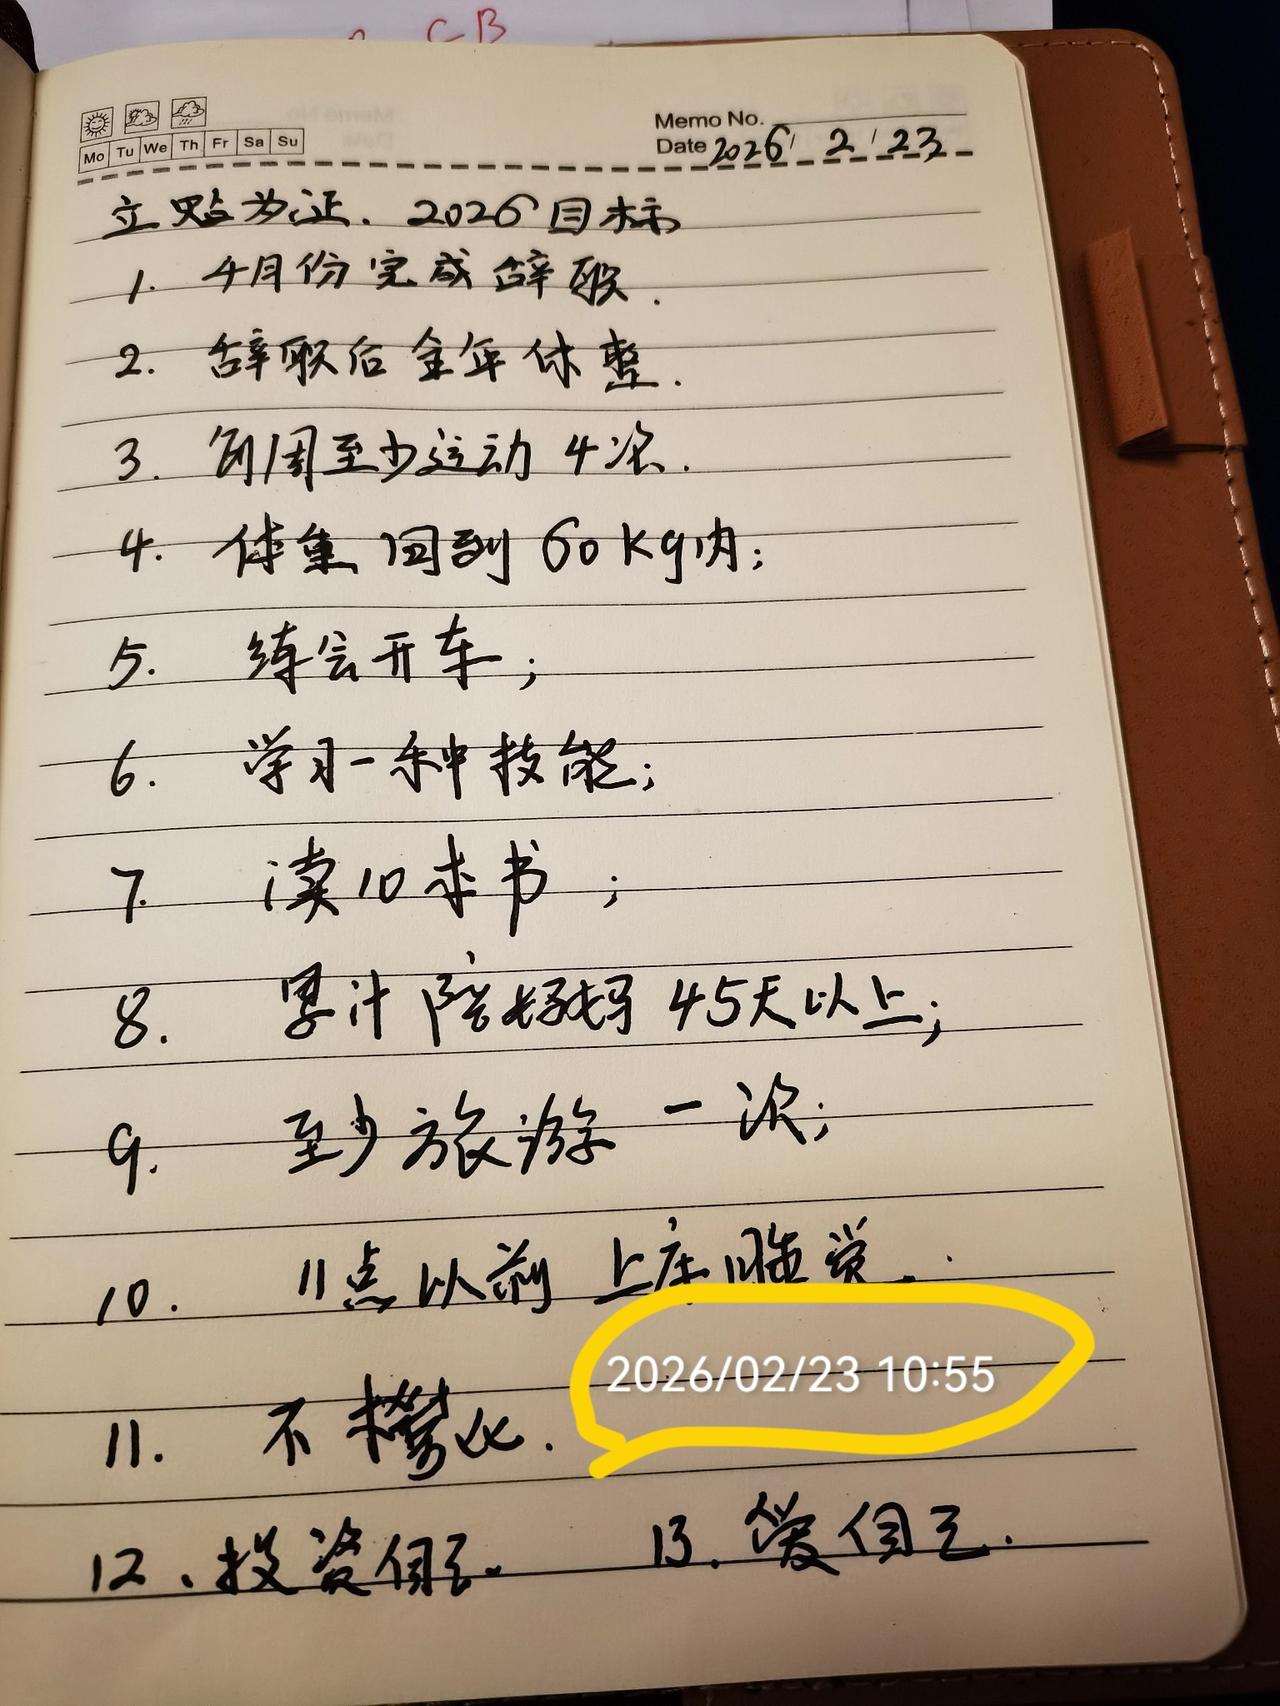 CB
Memo No.
Date 2026/2/23
Mo Tu We Th Fr Sa Su
立贴为证. 2026目标
1. 4月份完成辞职.
2. 辞职后全年休整.
3. 每周至少运动4次.
4. 体重回到60kg内;
5. 练会开车;
6. 学习一种技能;
7. 读10本书;
8. 累计陪妈妈45天以上;
9. 至少旅游一次;
10. 11点以前上床睡觉.
2026/02/23 10:55
11. 不攀比.
12. 投资自己. 13. 爱自己.